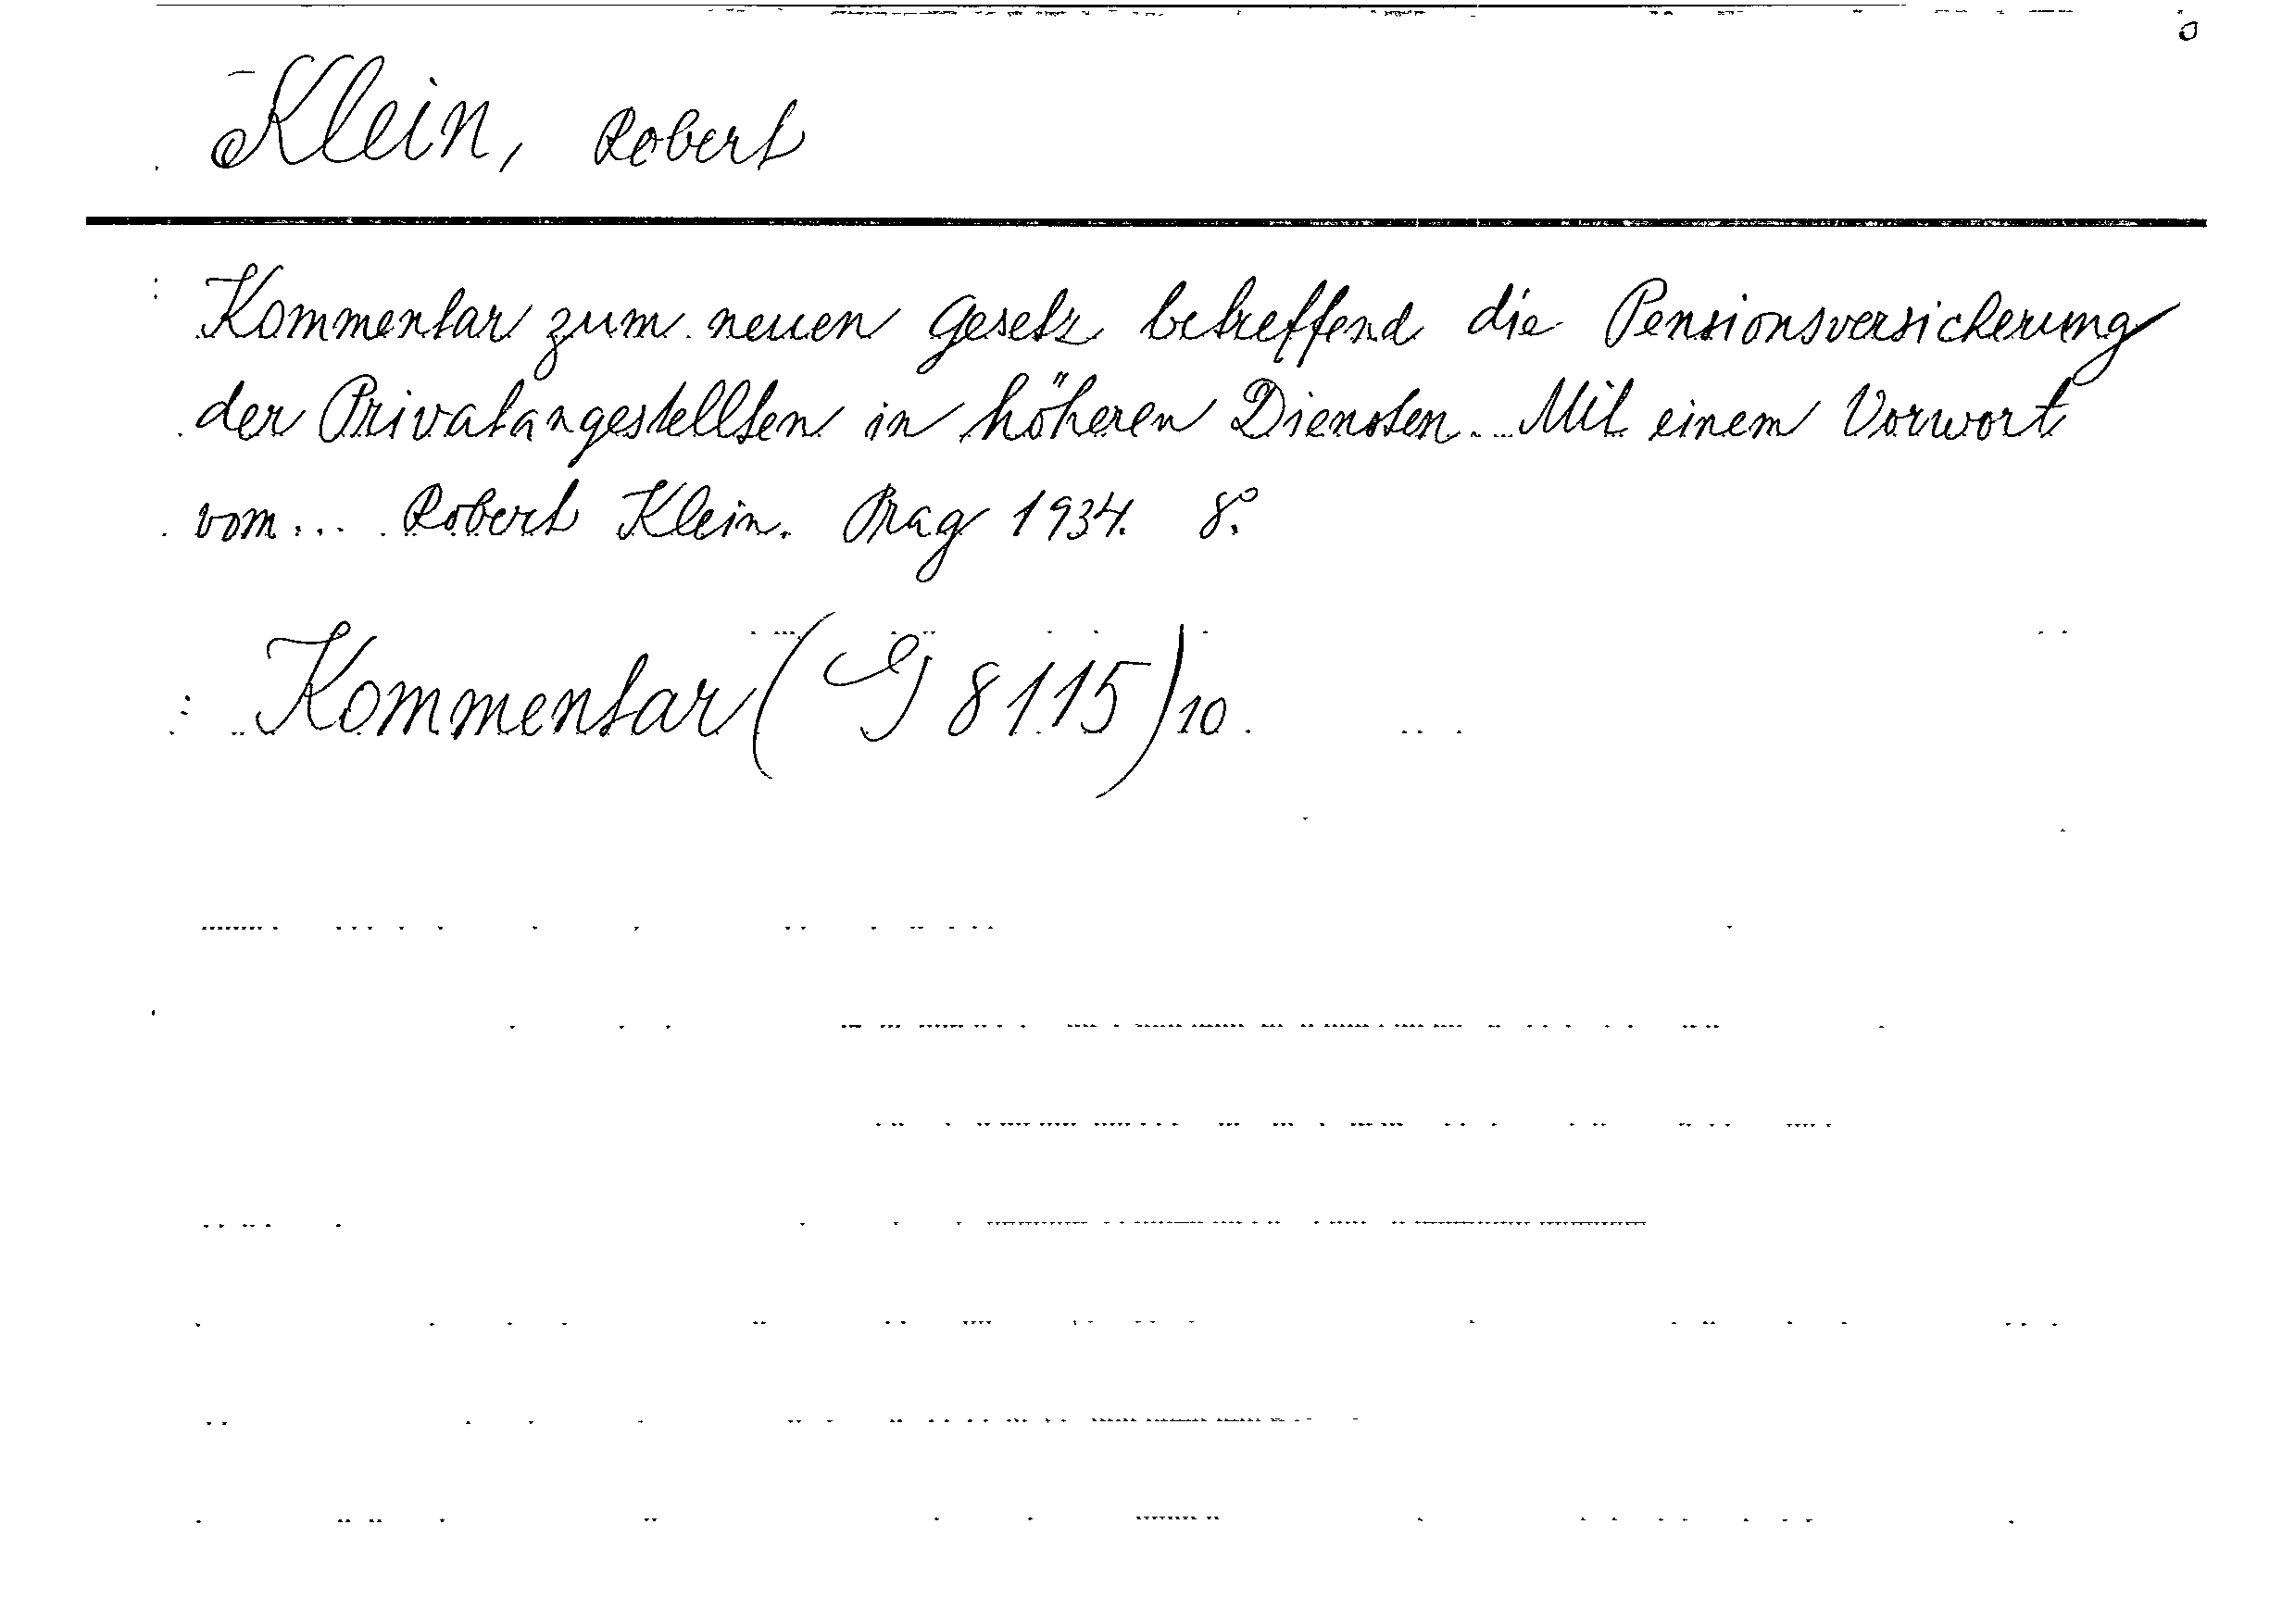 Klein, Robert
Kommentar zum neuen Gesetz betreffend die Pensionsversicherung
der Privatangestellten in höheren Diensten. Mit einem Vorwort
vom... Robert Klein. Prag 1934. 8°.
Kommentar (J 8115) 10.